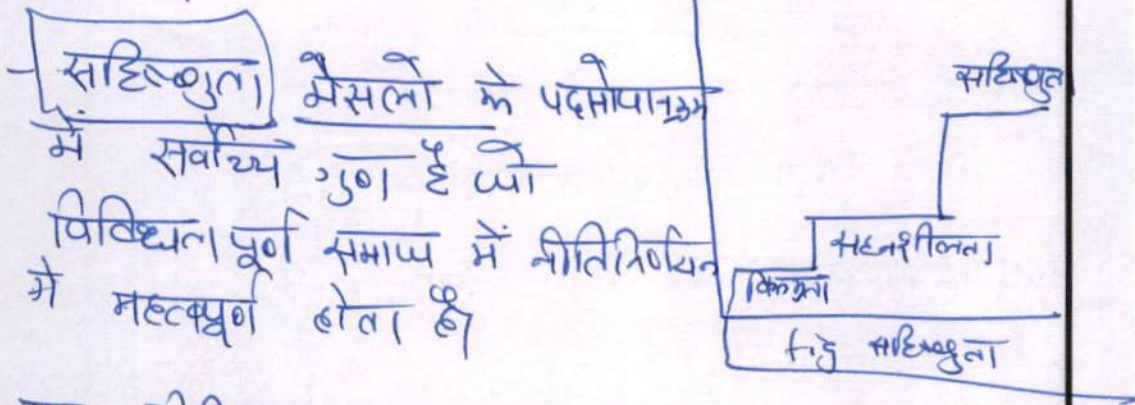 - सहिष्णुता मैसलो के पदसोपानक्रम
में सर्वोच्च गुण है जो
विविधता पूर्ण समाज में नीतिनिर्धारण
में महत्वपूर्ण होता है।
सहिष्णुता
सहनशीलता
विनम्रता
fig सहिष्णुता